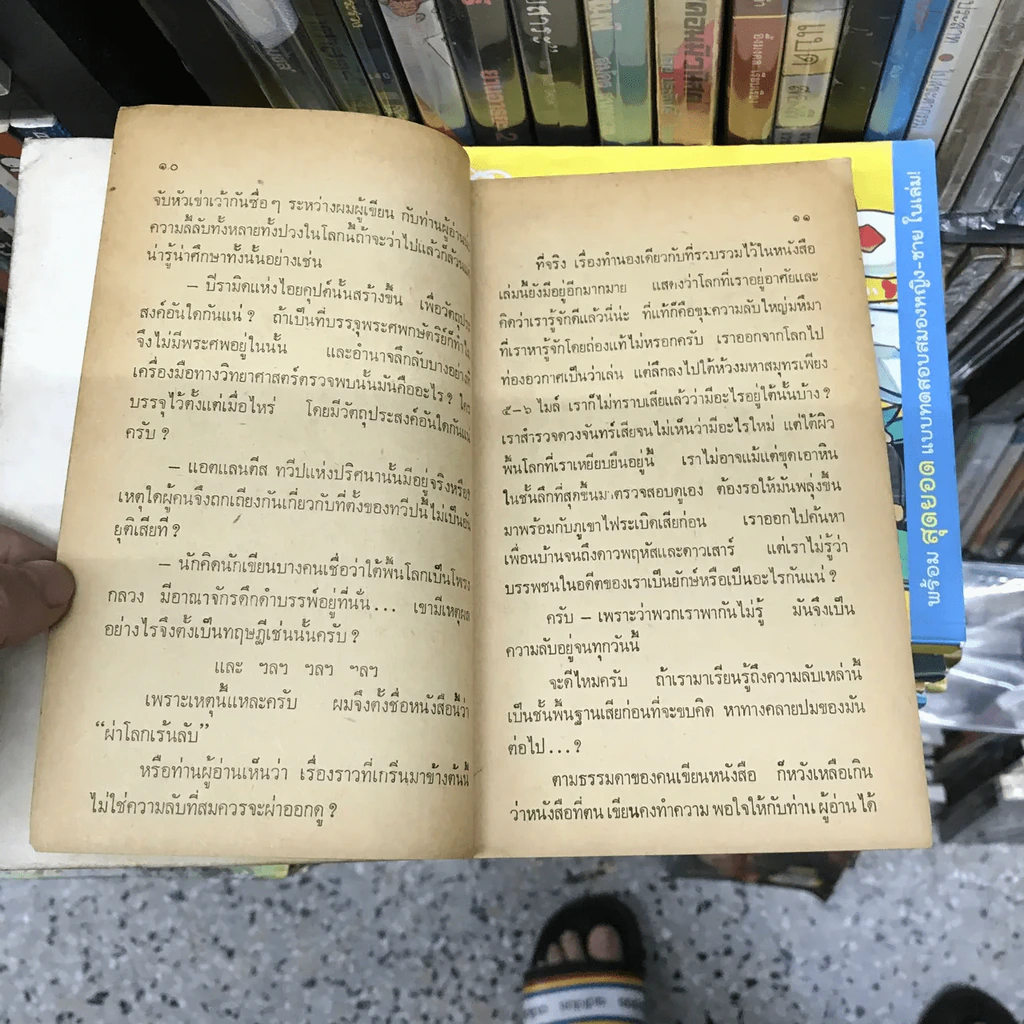 ๑๐
จับหัวเข่าเว้ากันซื่อๆ ระหว่างผมผู้เขียน กับท่านผู้อ่าน
ความลี้ลับทั้งหลายทั้งปวงในโลกนี้ถ้าจะว่าไปแล้วก็ล้วน
น่ารู้น่าศึกษาทั้งนั้นอย่างเช่น
– ปีรามิดแห่งไอยคุปต์นั้นสร้างขึ้น เพื่อวัตถุประ
สงค์อันใดกันแน่ ? ถ้าเป็นที่บรรจุพระศพกษัตริย์ก็ทำ
จึงไม่มีพระศพอยู่ในนั้น และอำนาจลึกลับบางอย่าง
เครื่องมือทางวิทยาศาสตร์ตรวจพบนั้นมันคืออะไร ? ใคร
บรรจุไว้ตั้งแต่เมื่อไหร่ โดยมีวัตถุประสงค์อันใดกันแน่
ครับ ?
– แอตแลนตีส ทวีปแห่งปริศนานั้นมีอยู่จริงหรือ
เหตุใดผู้คนจึงถกเถียงกันเกี่ยวกับที่ตั้งของทวีปนี้ไม่เป็นอัน
ยุติเสียที ?
– นักคิดนักเขียนบางคนเชื่อว่าใต้พื้นโลกเป็นโพรง
กลวง มีอาณาจักรดึกดำบรรพ์อยู่ที่นั่น... เขามีเหตุผล
อย่างไรจึงตั้งเป็นทฤษฎีเช่นนั้นครับ ?
และ ฯลฯ ฯลฯ ฯลฯ
เพราะเหตุนี้แหละครับ ผมจึงตั้งชื่อหนังสือนี้ว่า
“ผ่าโลกเร้นลับ”
หรือท่านผู้อ่านเห็นว่า เรื่องราวที่เกริ่นมาข้างต้นนี้
ไม่ใช่ความลับที่สมควรจะผ่าออกดู ?
๑๑
ที่จริง เรื่องทำนองเดียวกับที่รวบรวมไว้ในหนังสือ
เล่มนี้ยังมีอยู่อีกมากมาย แสดงว่าโลกที่เราอยู่อาศัยและ
คิดว่าเรารู้จักดีแล้วนี่น่ะ ที่แท้ก็คือขุมความลับใหญ่มหึมา
ที่เราหารู้จักโดยถ่องแท้ไม่หรอกครับ เราออกจากโลกไป
ท่องอวกาศเป็นว่าเล่น แต่ลึกลงไปใต้ห้วงมหาสมุทรเพียง
๕–๖ ไมล์ เราก็ไม่ทราบเสียแล้วว่ามีอะไรอยู่ใต้นั้นบ้าง ?
เราสำรวจดวงจันทร์เสียจนไม่เห็นว่ามีอะไรใหม่ แต่ใต้ผิว
พื้นโลกที่เราเหยียบยืนอยู่นี้ เราไม่อาจแม้แต่ขุดเอาหิน
ในชั้นลึกที่สุดขึ้นมาตรวจสอบดูเอง ต้องรอให้มันพลุ่งขึ้น
มาพร้อมกับภูเขาไฟระเบิดเสียก่อน เราออกไปค้นหา
เพื่อนบ้านจนถึงดาวพฤหัสและดาวเสาร์ แต่เราไม่รู้ว่า
บรรพชนในอดีตของเราเป็นยักษ์หรือเป็นอะไรกันแน่ ?
ครับ – เพราะว่าพวกเราพากันไม่รู้ มันจึงเป็น
ความลับอยู่จนทุกวันนี้
จะดีไหมครับ ถ้าเรามาเรียนรู้ถึงความลับเหล่านี้
เป็นชั้นพื้นฐานเสียก่อนที่จะขบคิด หาทางคลายปมของมัน
ต่อไป...?
ตามธรรมดาของคนเขียนหนังสือ ก็หวังเหลือเกิน
ว่าหนังสือที่ตน เขียนคงทำความ พอใจให้กับท่าน ผู้อ่าน ได้
พร้อม สุดยอด แบบทดสอบสมองหญิง-ชาย ในเล่ม!